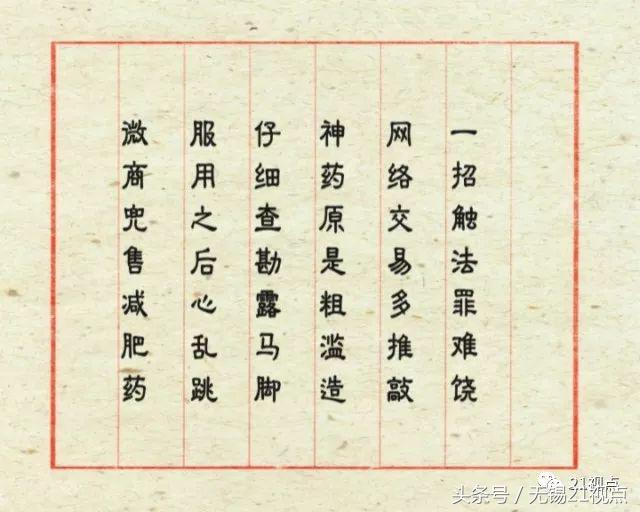 微商兜售减肥药
服用之后心乱跳
仔细查勘露马脚
神药原是粗滥造
网络交易多推敲
一招触法罪难饶
21视点
头条号 / 无锡21视点